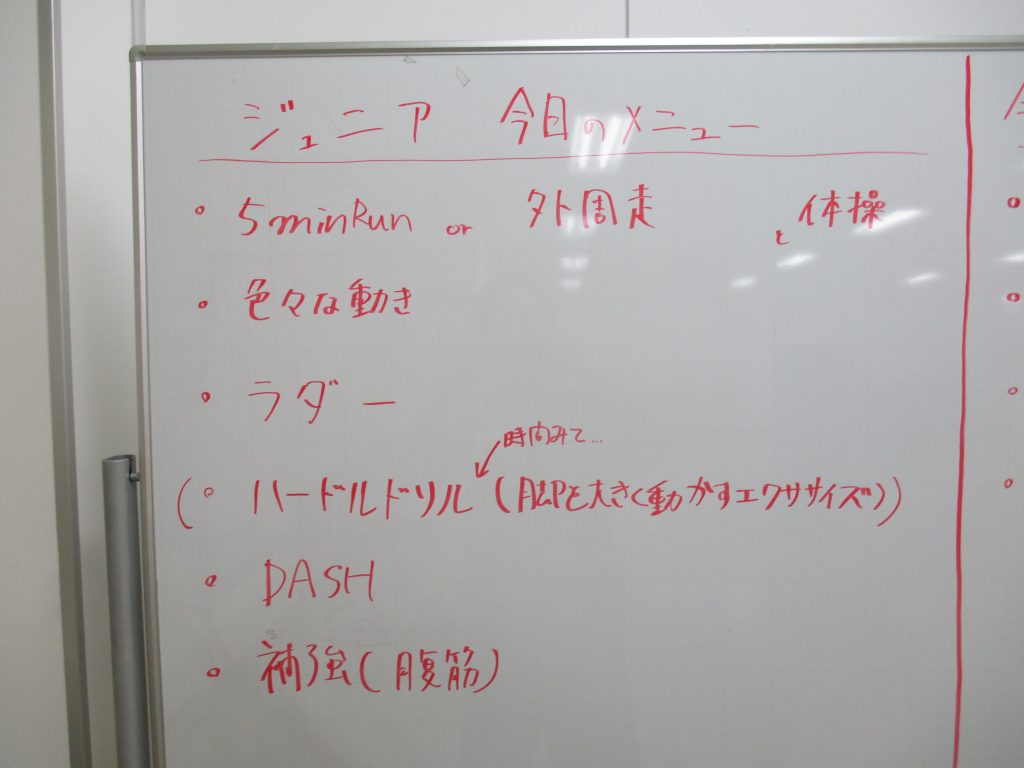 ジュニア 今日のメニュー
・ 5minRun or 外周走 と 体操
・ 色々な動き
・ ラダー
時間みて...
(・ ハードルドリル (脚を大きく動かすエクササイズ))
・ DASH
・ 補強(腹筋)